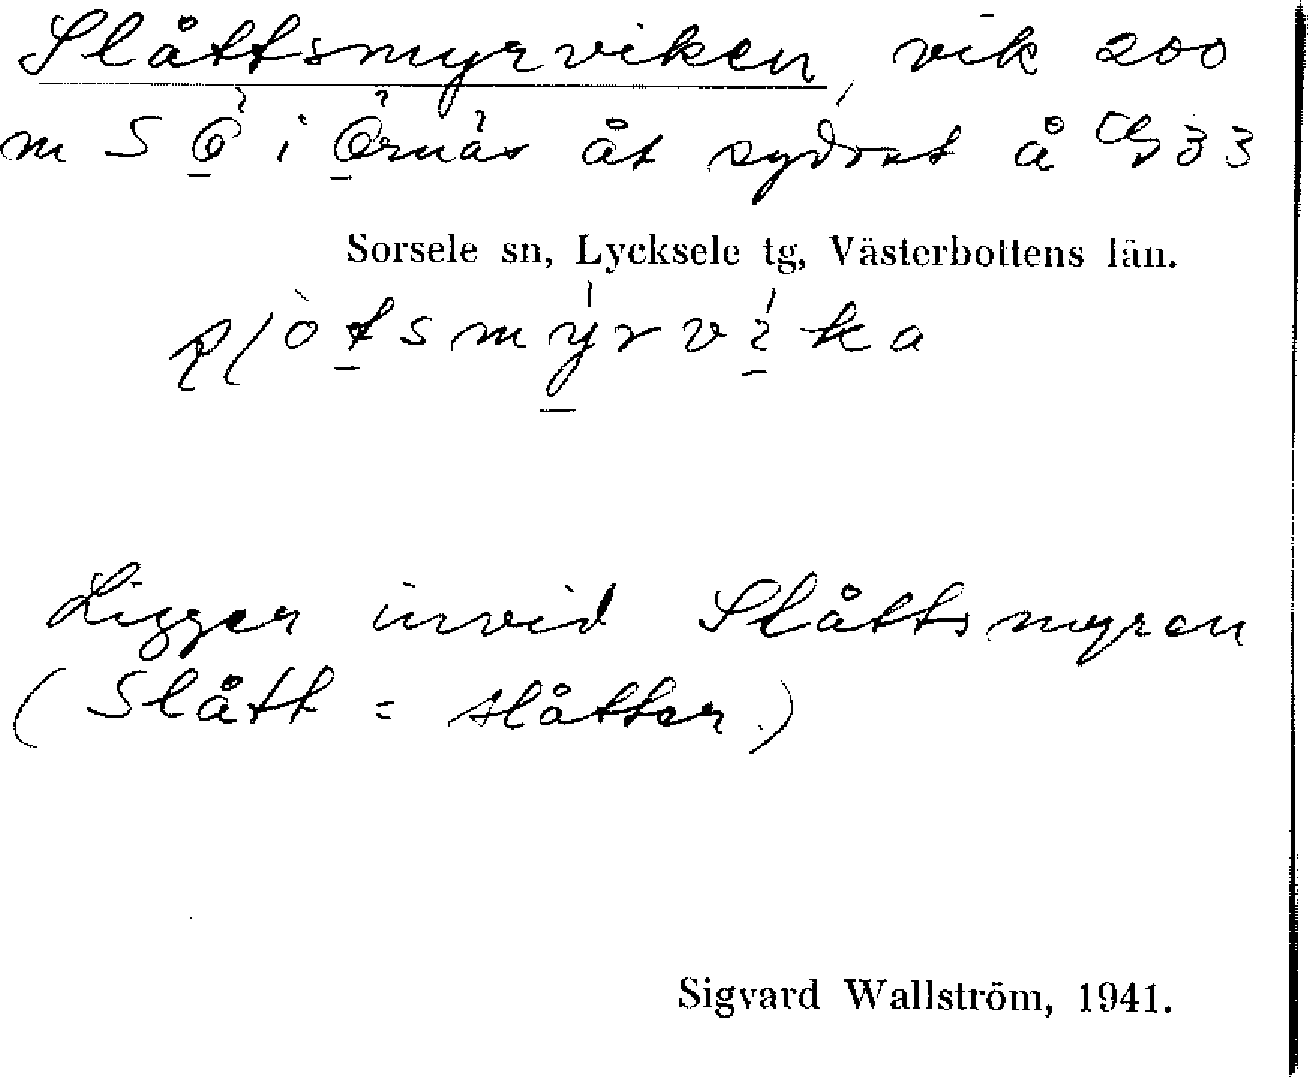 Slåttsmyrviken, vik 200
m S Ö i Örnäs åt sydost å 33
Sorsele sn, Lycksele tg, Västerbottens län.
Ligger invid Slåttsmyren
(Slått = slåtter.)
Sigvard Wallström, 1941.